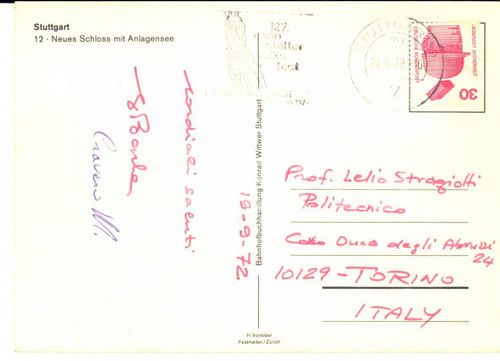 Stuttgart
12 - Neues Schloss mit Anlagensee
127.
fest
STUTTGART
7
30
cordiali saluti
19-9-72
Bahnhofbuchhandlung Konrad Wittwer Stuttgart
Prof. Lelio Stragiotti
Politecnico
Corso Duca degli Abruzzi
24
10129-TORINO
ITALY
H. Vontobel
Feldmeilen/Zürich